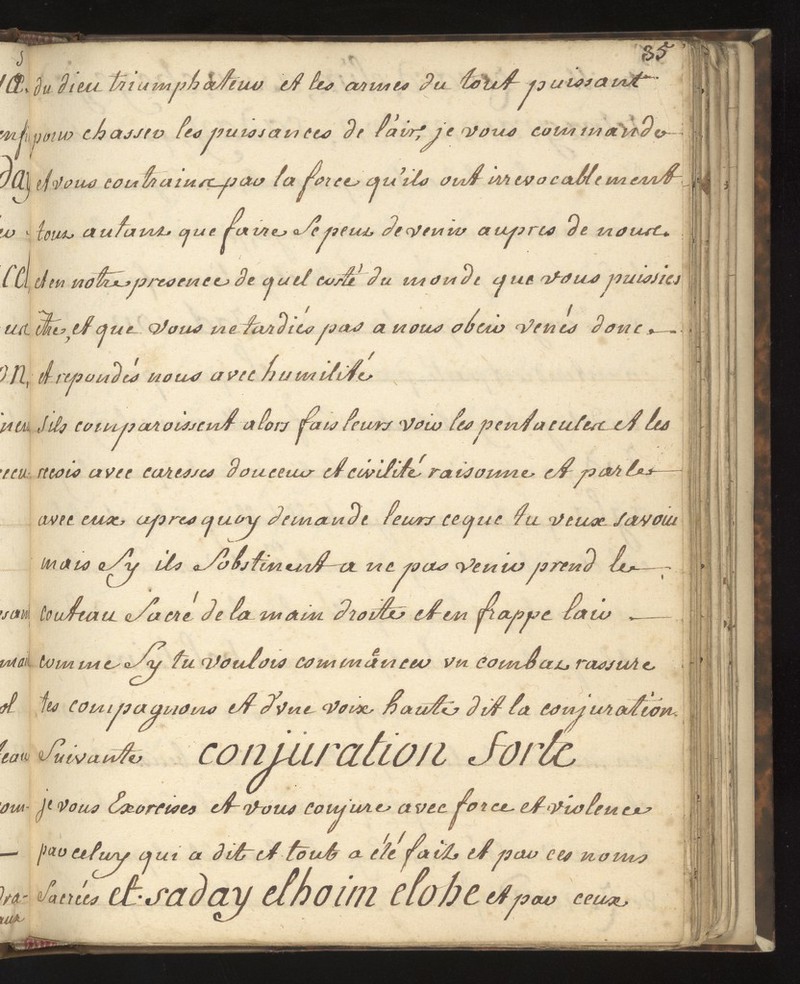 35
du dieu triumphateur et les armes du tout puissant
pour chasser les puissances de l'air, je vous commande
et vous contrains par la force qu'ils ont irrevocablement
tous autant que faire se peut de venir aupres de nous
et en notre presence de quel costé du monde que vous puissies
être, et que vous ne tardiés pas a nous obeir venés donc
et repondés nous avec humilité
s'ils comparoissent alors fais leurs voir les pentacules et les
recois avec caresses douceur et civilité raisonne et parler
avec eux apres quoy demande leurs ceque tu veux savoir
mais sy ils sobstinent a ne pas venir prend le
couteau sacré de la main droite et en frappe lair
comme sy tu voulois commâncer un combat rassure
tes compagnons et d'une voix haute dit la conjuration
suivante conjuration forte
je vous Exorcises et vous conjure avec force et violence
par celuy qui a dit et tout a été fait et par ces noms
sacrées et. saday elhoim elohe et par ceux